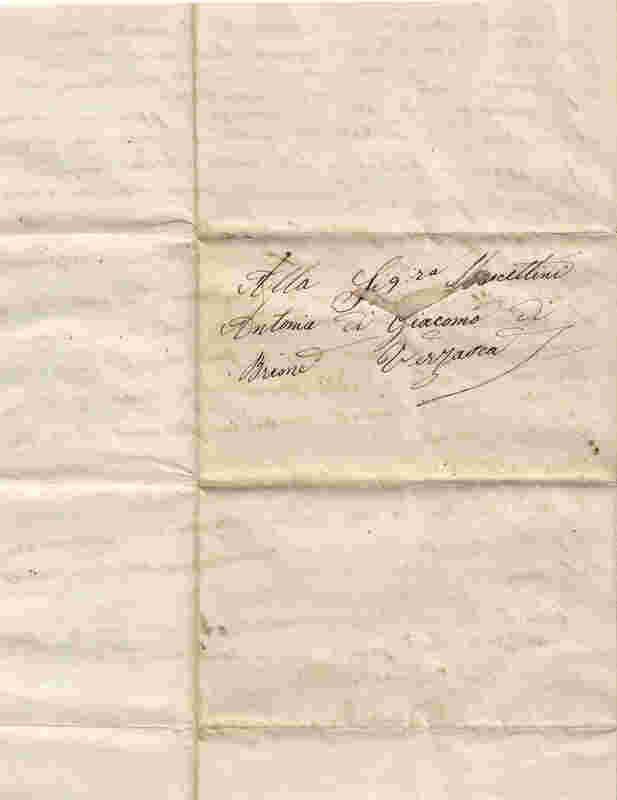 Alla Sig.ra Mascettini
Antonia di Giacomo di
Brione Verzasca